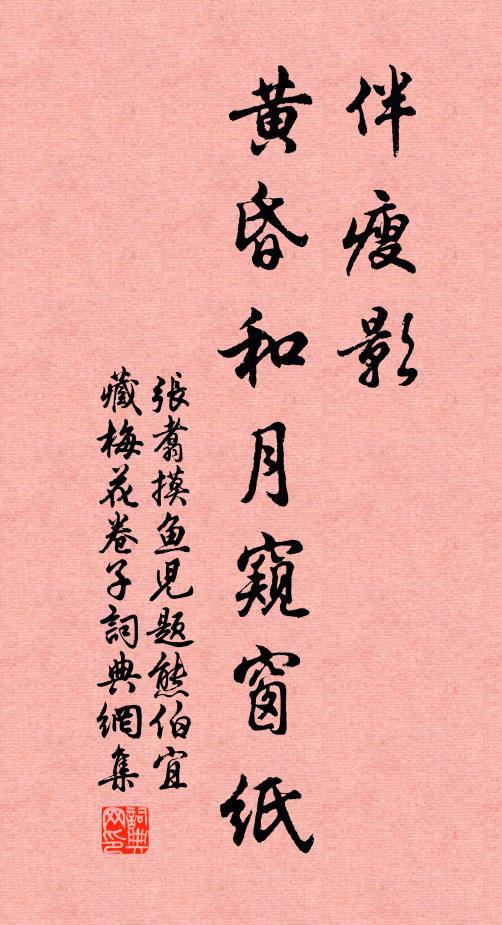 伴瘦影
黄昏和月窺窗紙
張翥摸魚児题熊伯宜
藏梅花卷子詞典網集
詞典网印